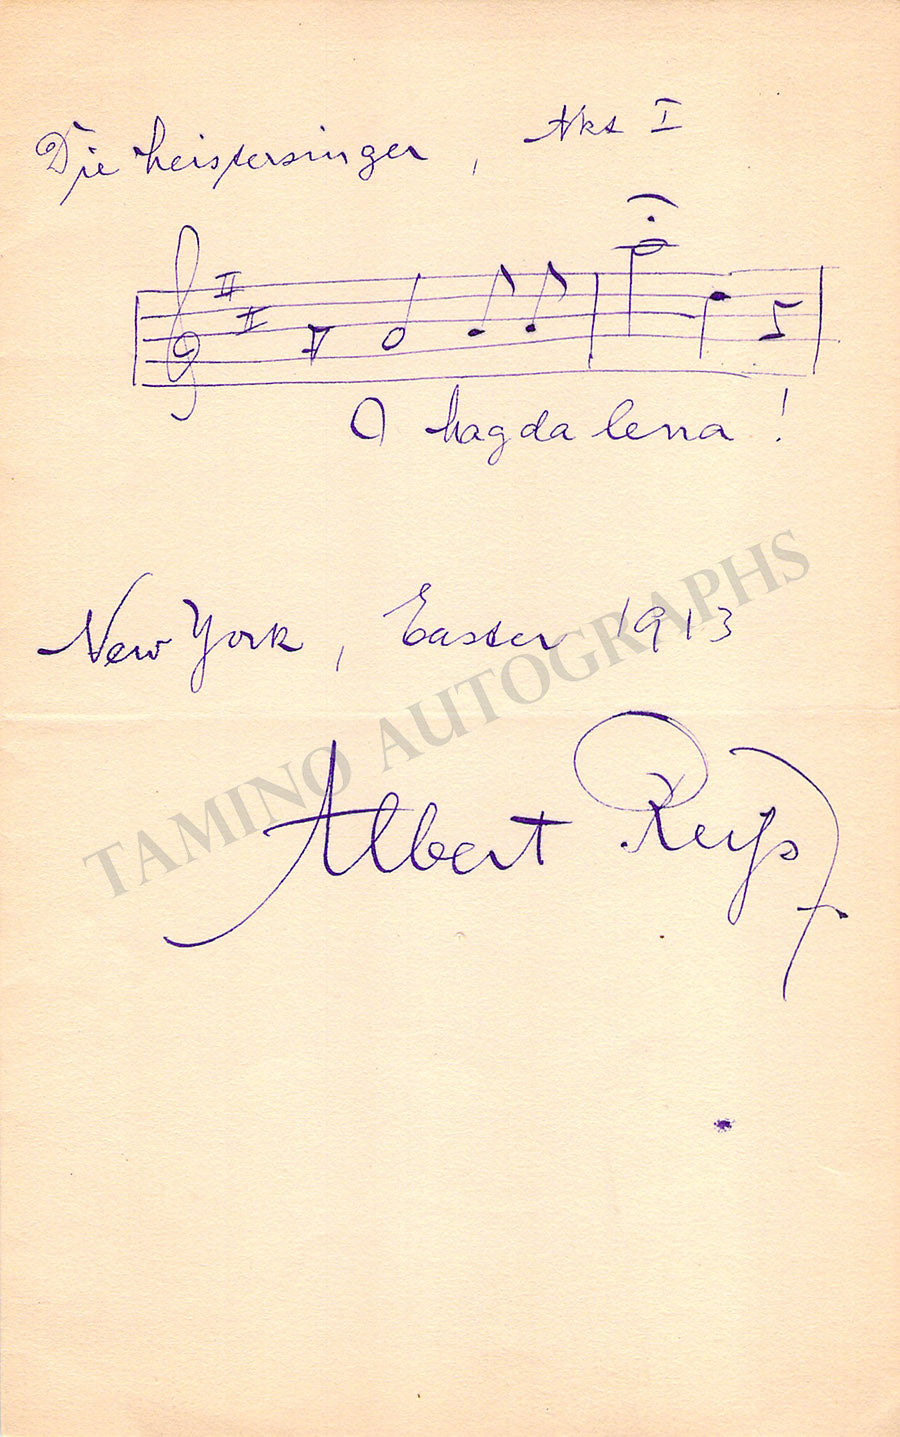 Die Meistersinger, Akt I
O Magdalena!
New York, Easter 1913
TAMINO AUTOGRAPHS
Albert Reiss